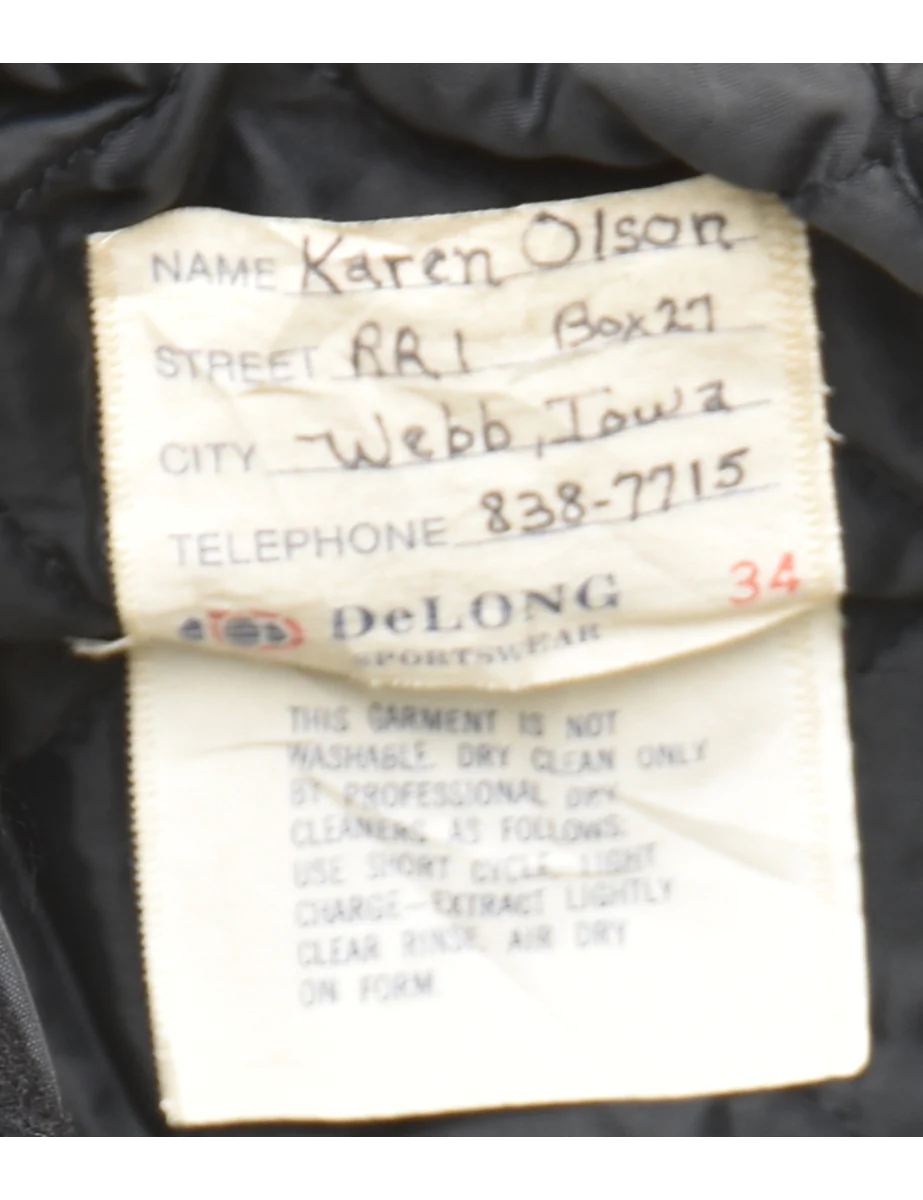 NAME Karen Olson
STREET RR1 Box 27
CITY Webb, Iowa
TELEPHONE 838-7715
34
DeLONG
SPORTSWEAR
THIS GARMENT IS NOT
WASHABLE DRY CLEAN ONLY
BY PROFESSIONAL DRY
CLEANERS AS FOLLOWS:
USE SHORT CYCLE LIGHT
CHARGE-EXTRACT LIGHTLY
CLEAR RINSE AIR DRY
ON FORM.